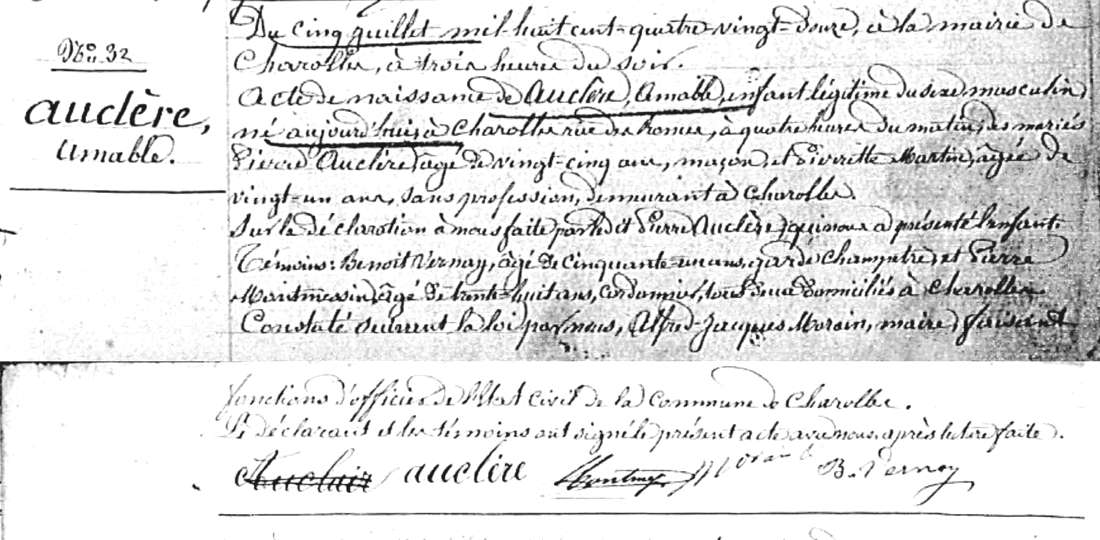 No 32
auclère,
Amable.
Du cinq juillet mil huit cent-quatre vingt-douze, à la mairie de
Charolles, à trois heures du soir.
Acte de naissance de Auclère, Amable, enfant légitime du sexe masculin,
né aujourd'hui, à Charolles rue de Rome, à quatre heures du matin, des mariés
Pierre Auclère, âgé de vingt-cinq ans, maçon, et Pierrette Martin, âgée de
vingt-un ans, sans profession, demeurant à Charolles.
Sur la déclaration à nous faite par ledit Pierre Auclère, qui nous a présenté l'enfant.
Témoins: Benoit Vernay, âgé de cinquante-un ans, garde Champêtre, et Pierre
Montmessin, âgé de trente-huit ans, cordonnier, tous deux domiciliés à Charolles.
Constaté suivant la loi par nous, Alfred-Jacques Morain, maire, faisant
fonctions d'officier de l'Etat Civil de la Commune de Charolles.
Le déclarant et les témoins ont signé le présent acte avec nous après lecture faite.
Auclair auclère B. Vernay